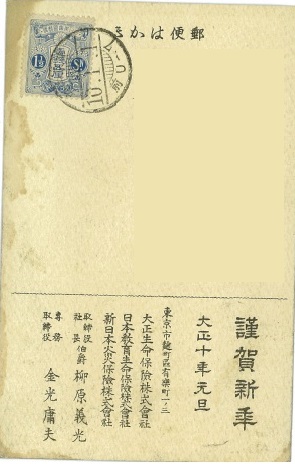 郵便はがき
10.1.1
1½Sn
謹賀新年
大正十年元旦
東京市麹町區有樂町一ノ三
大正生命保險株式會社
日本教育生命保險株式會社
新日本火災保險株式會社
取締役社長 伯爵 柳原義光
專務取締役 金光庸夫